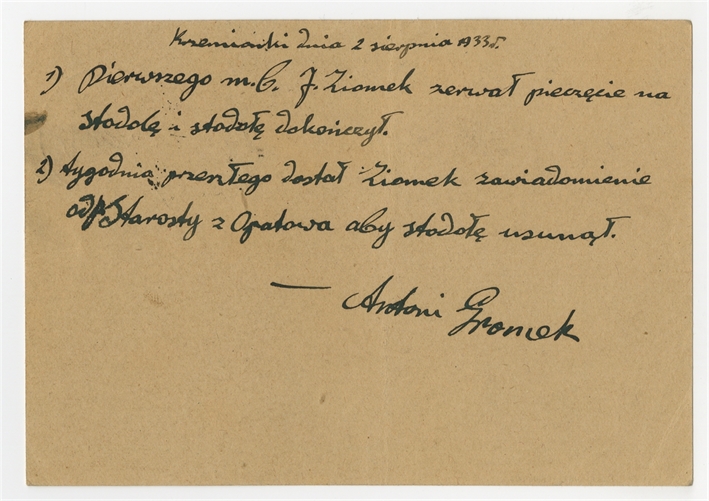 Krzemionki dnia 2 sierpnia 1933 r.
1) Pierwszego m.b. J. Ziomek zerwał pieczęcie na
stodolę i stodołę dokończył.
2) tygodnia przeszłego dostał Ziomek zawiadomienie
od p. Starosty z Opatowa aby stodołę usunął.
— Antoni Gromek